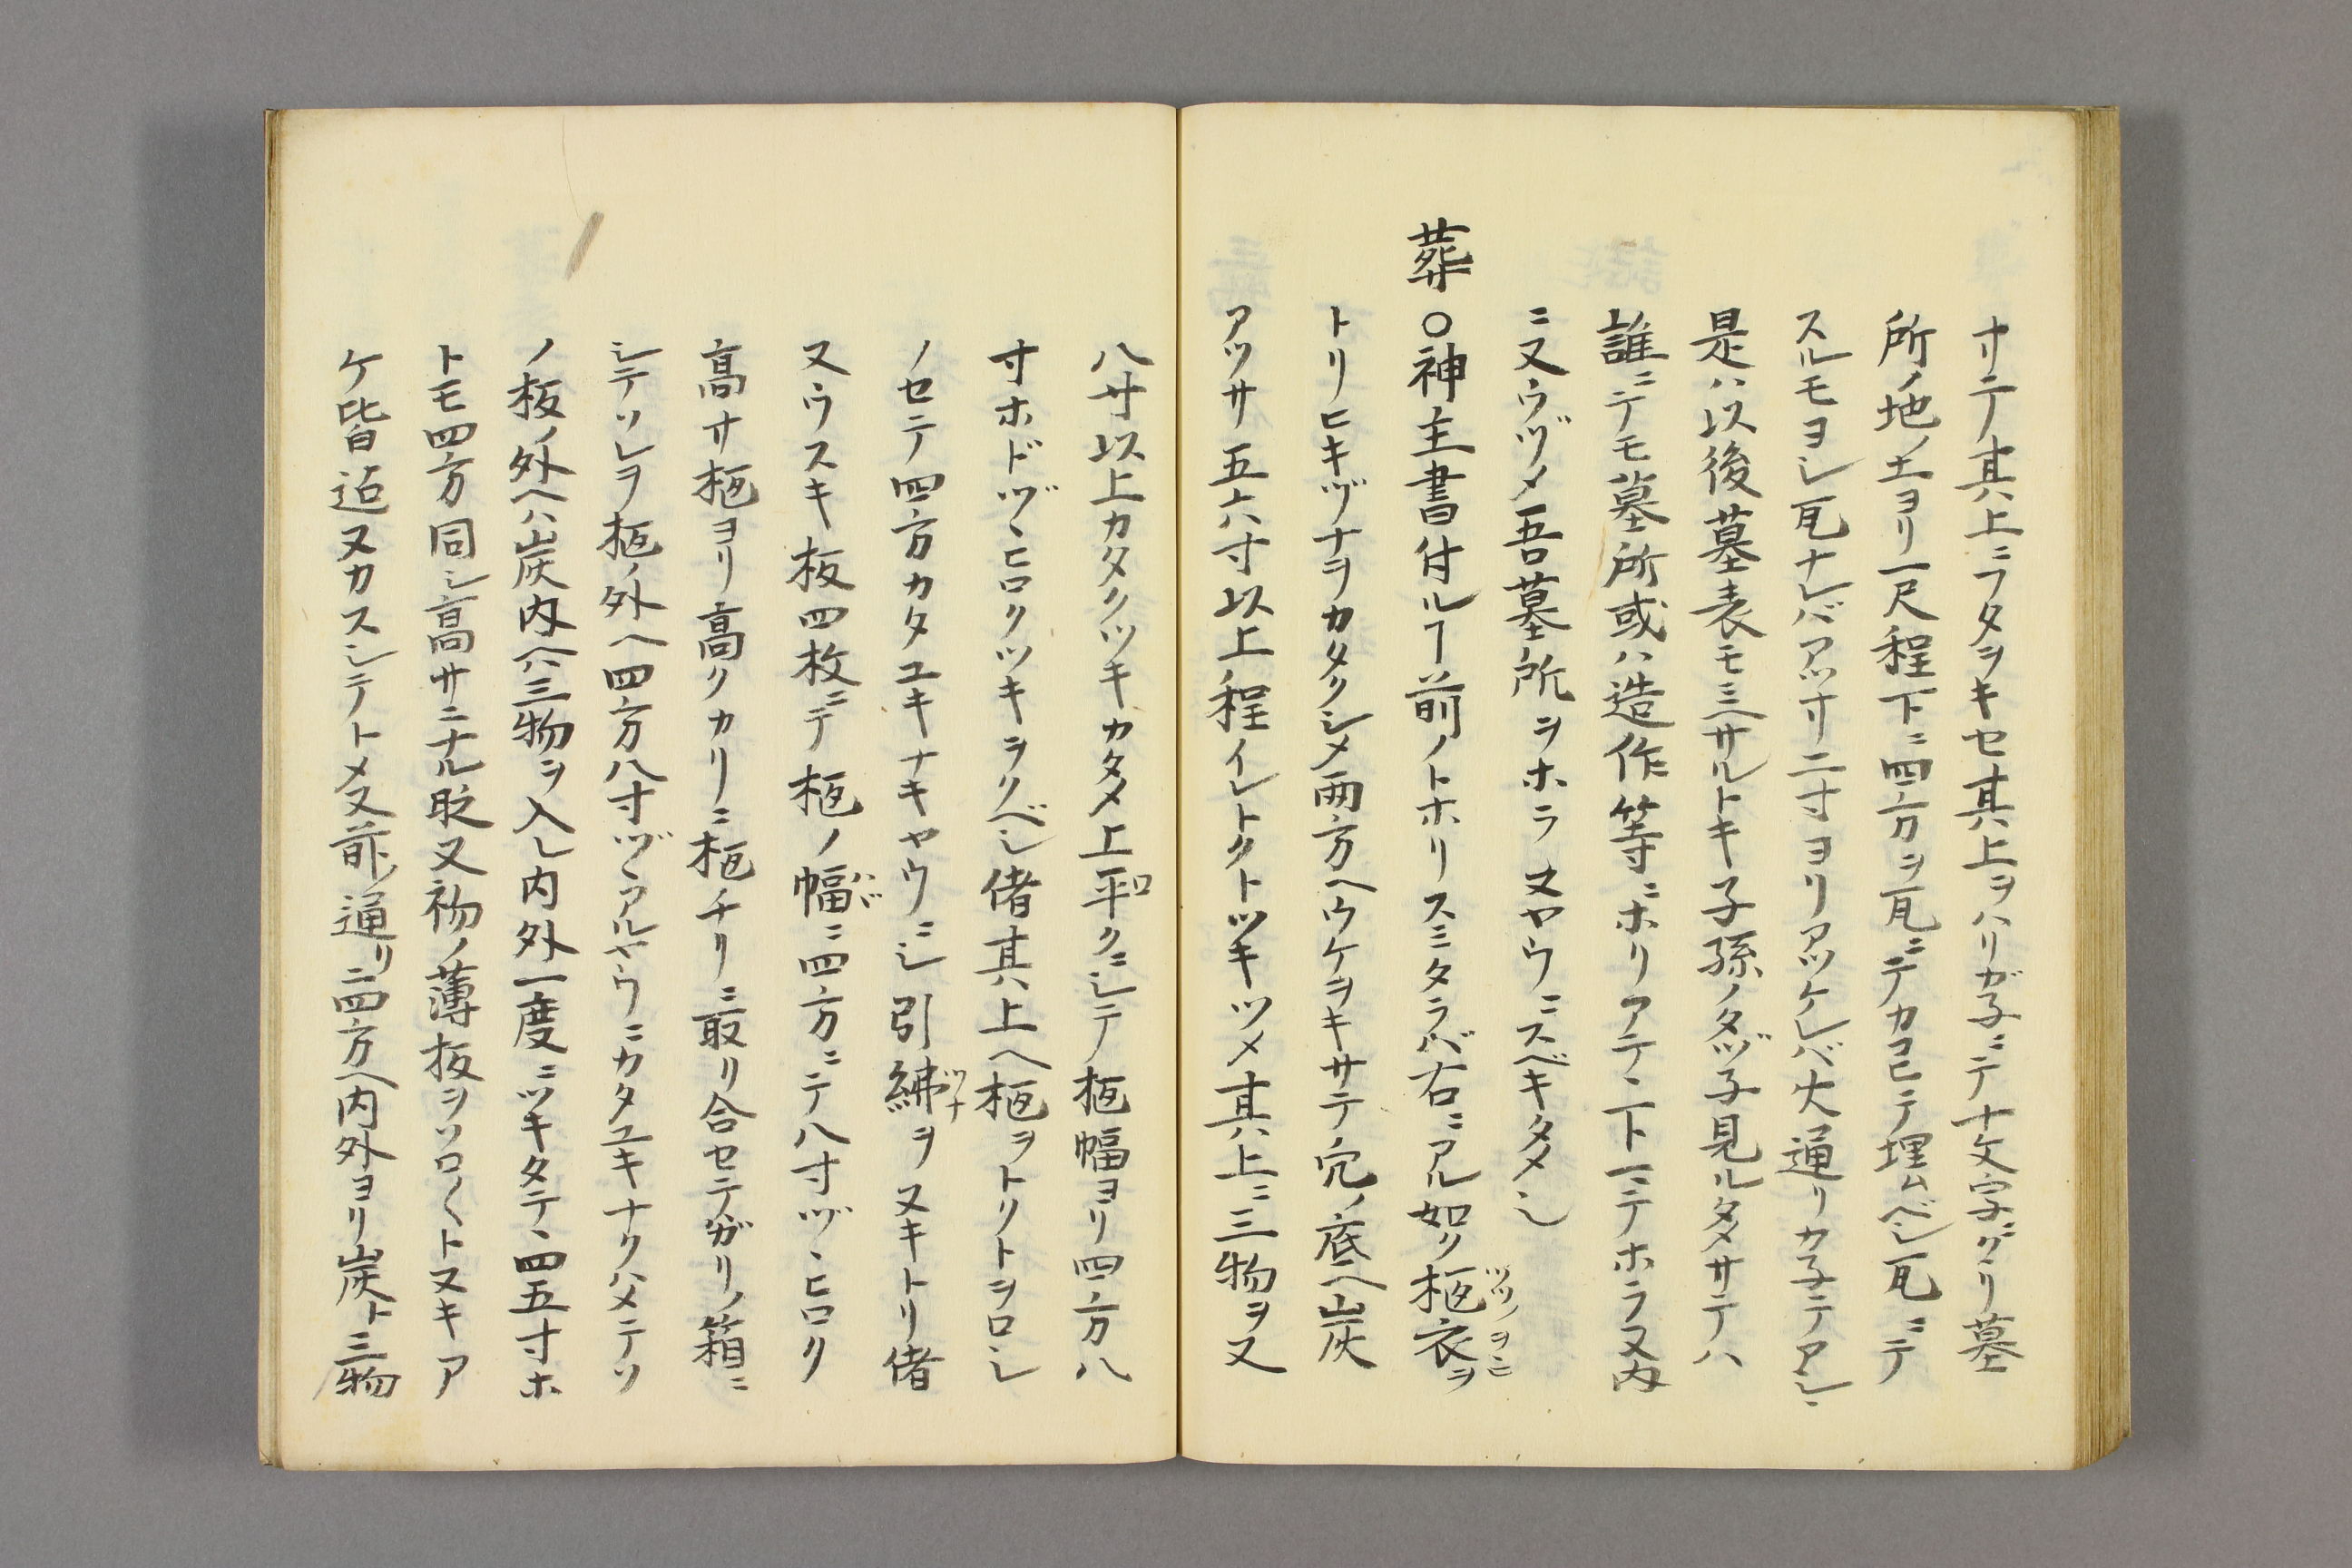 オニテ其上ニフタヲキセ其上ヲハリガ子ニテ十文字ニグリ墓
所ノ地ノ土ヨリ一尺程下ニ四方ヲ瓦ニテカコヒテ埋ムベシ瓦ニテ
スルモヨシ瓦ナレバアツサ二寸ヨリアツケレバ火通リカ子テアシヽ
是ハ以後墓表モミヘサルトキ子孫ノタヅ子見ルタメサテハ
誰ニテモ墓所或ハ造作等ニホリアテヽ下ニテホラヌ内
ニ又ウヅメ吾墓所ヲホラヌヤウニスベキタメ也
葬○神主書付ルヿ前ノトホリスミタラバ右ニアル如ク柩衣ヲ
トリヒキヅナヲカタクシメ両方ヘウケヲキサテ穴ノ底ヘ炭
アツサ五六寸以上程イレトクトツキツメ其上ニ三物ヲ又
八寸以上カタクツキカタメ上平ロクニシテ柩幅ヨリ四方八
寸ホドヅヽヒロクツキヲクベシ偖其上ヘ柩ヲトクトヲロシ
ノセテ四方カタユキナキヤウニシ引紼ツナヲヌキトリ偖
又ウスキ板四枚ニテ柩ノ幅ハヾニ四方ニテ八寸ヅヽヒロク
高サ柩ヨリ高クカリニ柩ナリニ取リ合セテガリノ箱ニ
シテソレヲ柩ノ外ヘ四方八寸ヅヽアルヤウニカタユキナクハメテソ
ノ板ノ外ヘハ炭内ヘハ三物ヲ入レ内外一度ニツキタテヽ四五寸ホ
トモ四方同シ高サニナル時又初ノ薄板ヲソロ〱トヌキア
ケ皆迠ヌカスシテトメ又前ノ通リニ四方ヘ内外ヨリ炭ト三物